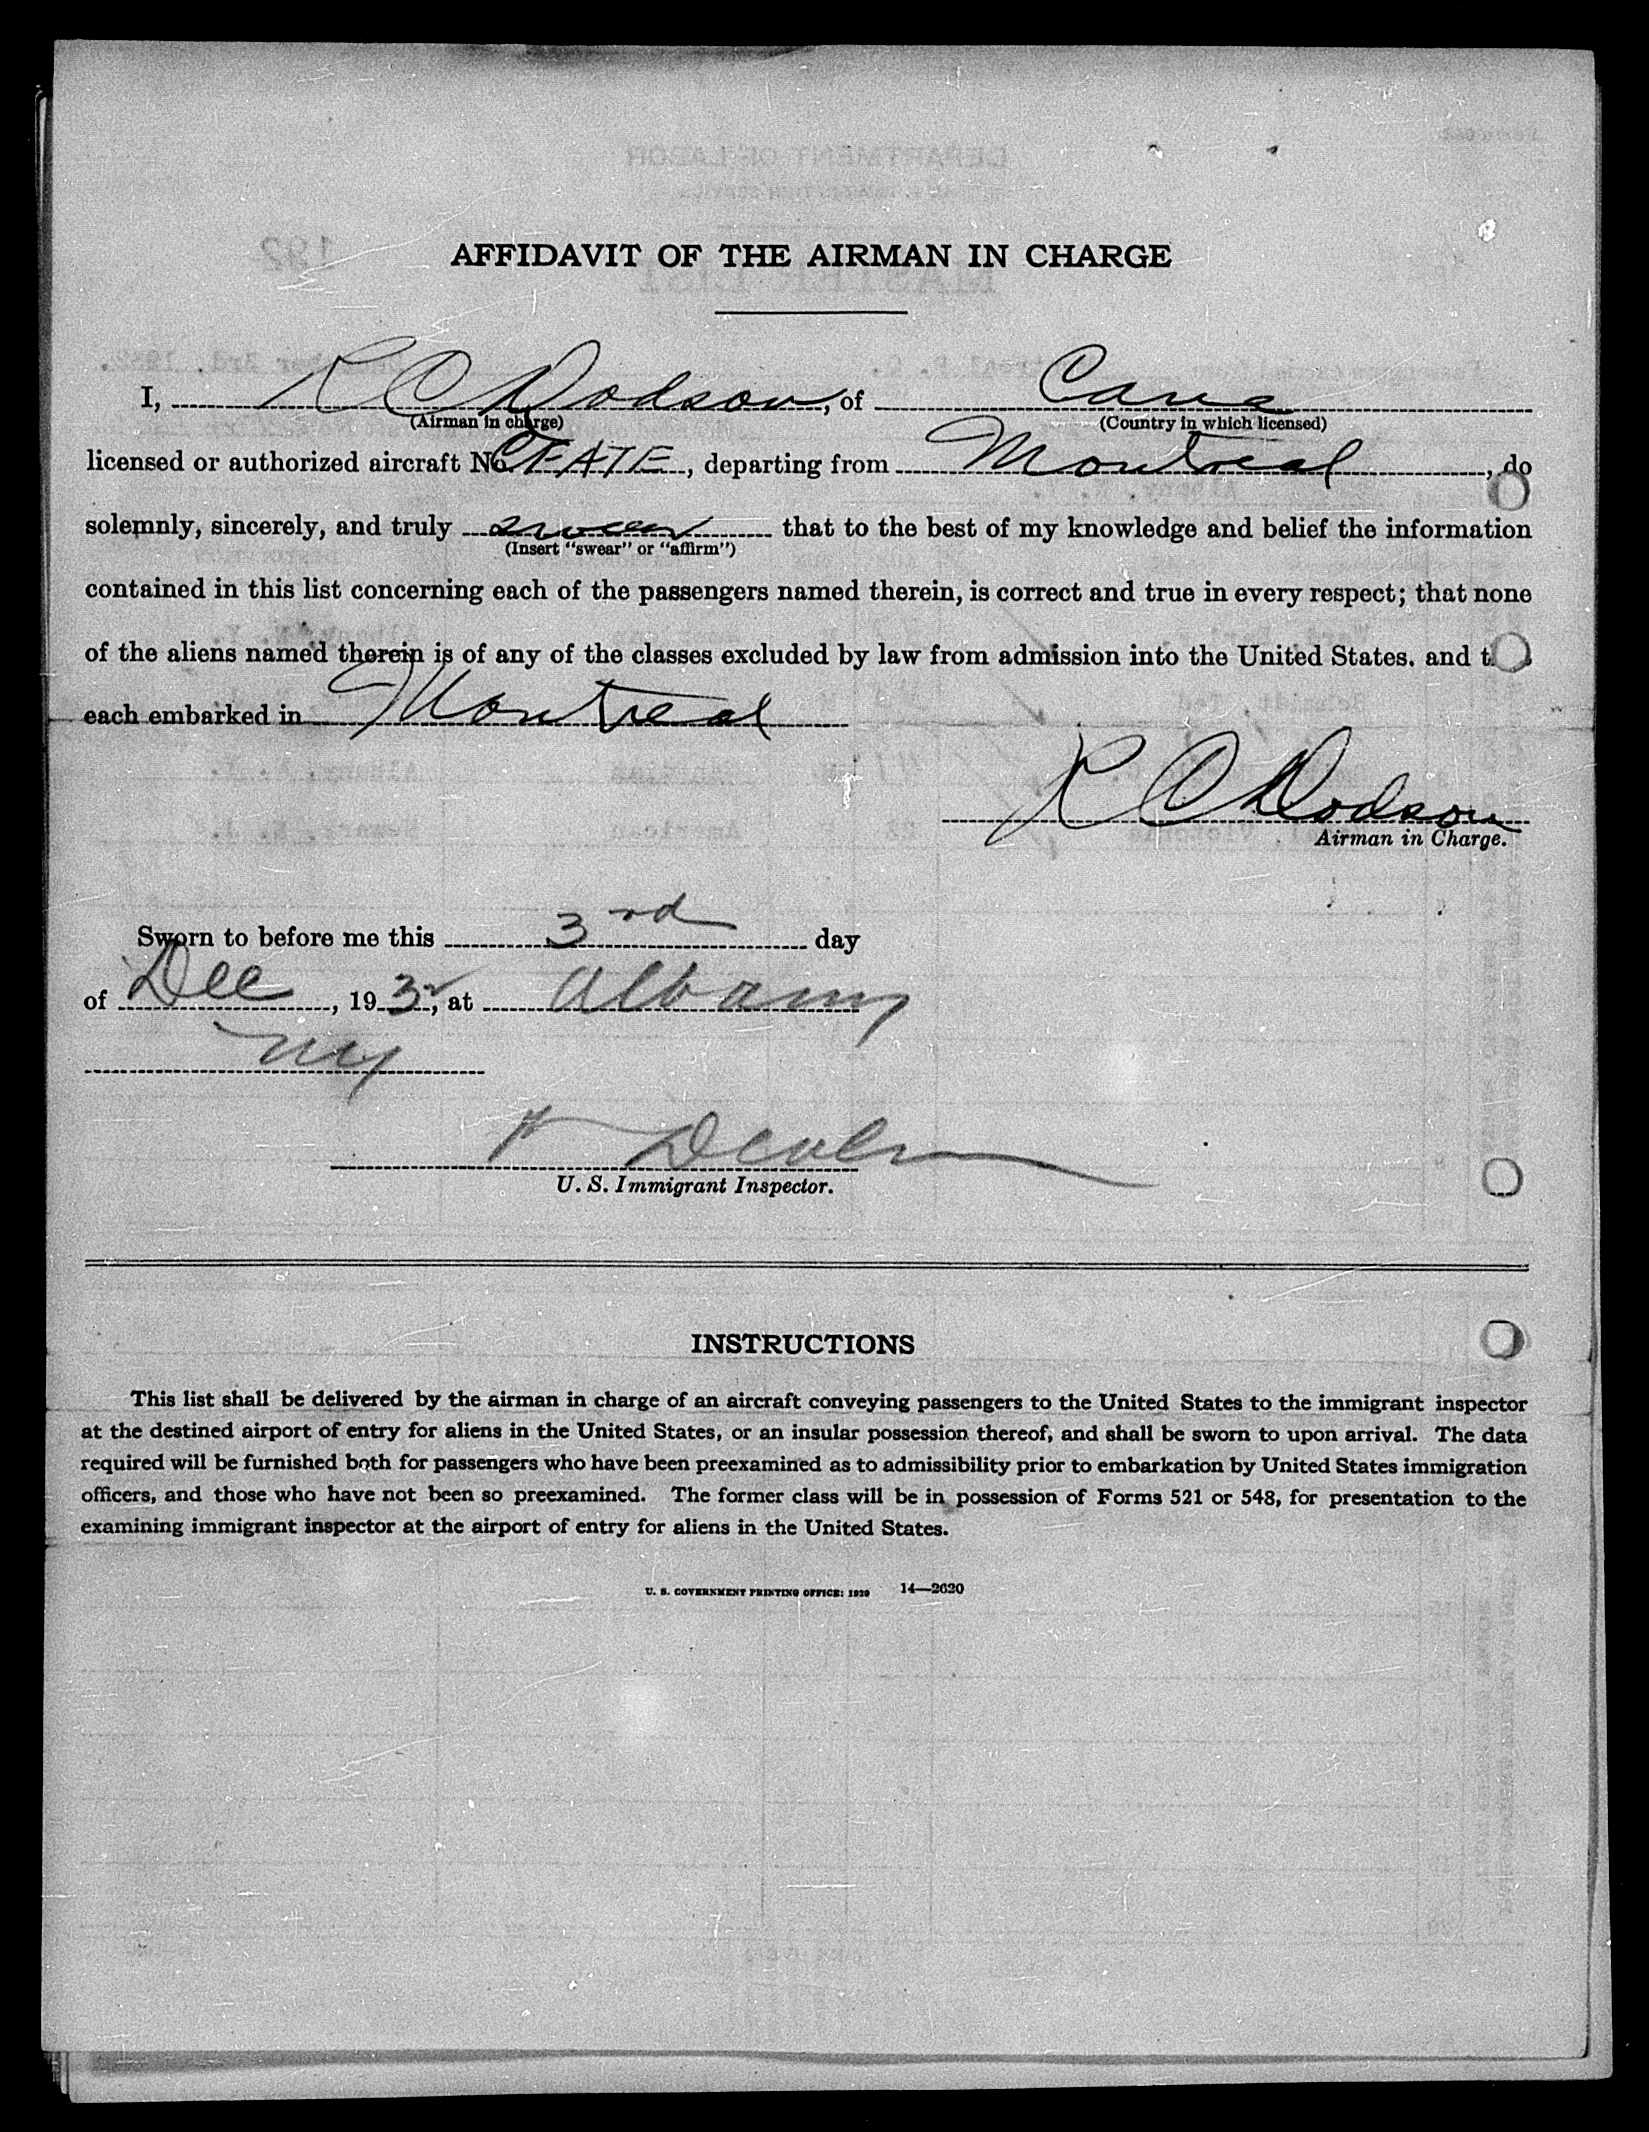 AFFIDAVIT OF THE AIRMAN IN CHARGE
I, R C Dodson, of Cana
(Airman in charge) (Country in which licensed)
licensed or authorized aircraft No. CFATE, departing from Montreal, do
solemnly, sincerely, and truly that to the best of my knowledge and belief the information
(Insert "swear" or "affirm")
contained in this list concerning each of the passengers named therein, is correct and true in every respect; that none
of the aliens named therein is of any of the classes excluded by law from admission into the United States. and
each embarked in Montreal
R C Dodson
Airman in Charge.
Sworn to before me this 3rd day
of Dec, 1932, at Albany
NY
U. S. Immigrant Inspector.
INSTRUCTIONS
This list shall be delivered by the airman in charge of an aircraft conveying passengers to the United States to the immigrant inspector
at the destined airport of entry for aliens in the United States, or an insular possession thereof, and shall be sworn to upon arrival. The data
required will be furnished both for passengers who have been preexamined as to admissibility prior to embarkation by United States immigration
officers, and those who have not been so preexamined. The former class will be in possession of Forms 521 or 548, for presentation to the
examining immigrant inspector at the airport of entry for aliens in the United States.
U. S. GOVERNMENT PRINTING OFFICE: 1929 14—2620